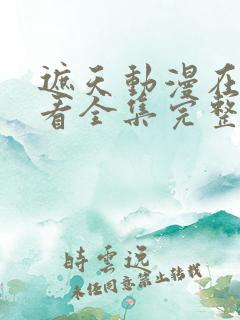 遮天動漫在
看全集完整
時雲远
未经同意禁止转载